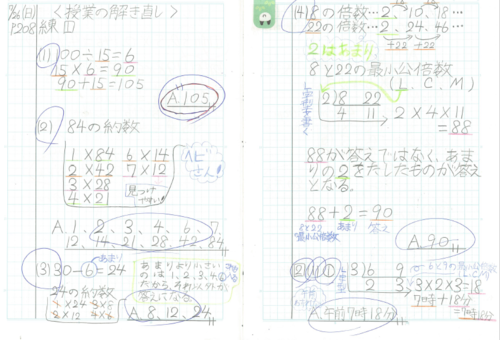 (日) <授業の解き直し>
P208練1
(1) 100÷15=6
15×6=90
90+15=105
A.105
(2) 84の約数
1×84 6×14
2×42 7×12
3×28
4×21
見つけやすい!
ヘビさん!
A.1、2、3、4、6、7、
12、14、21、28、42、84
(3)30-6=24
あまり
24の約数
1×24 3×8
2×12 4×6
あまりより小さい
のは、1、2、3、4、6
だから、それ以外が
答えになる。
A.8、12、24
(4)8の倍数…2、10、18…
22の倍数…2、24、46…
+22 +22
2はあまり
8と22の最小公倍数
(L.C.M)
2)8 22
4 11
2×4×11
=88
88が答えではなく、あま
りの2をたしたものが答え
となる。
88+2=90
8と22 あまり 答え
最小公倍数
A.90
2(1)①
3)6 9
2 3
6と9の最小公倍数
L.C.M
3×2×3=18
7時+18分
=7時18分
A.午前7時18分